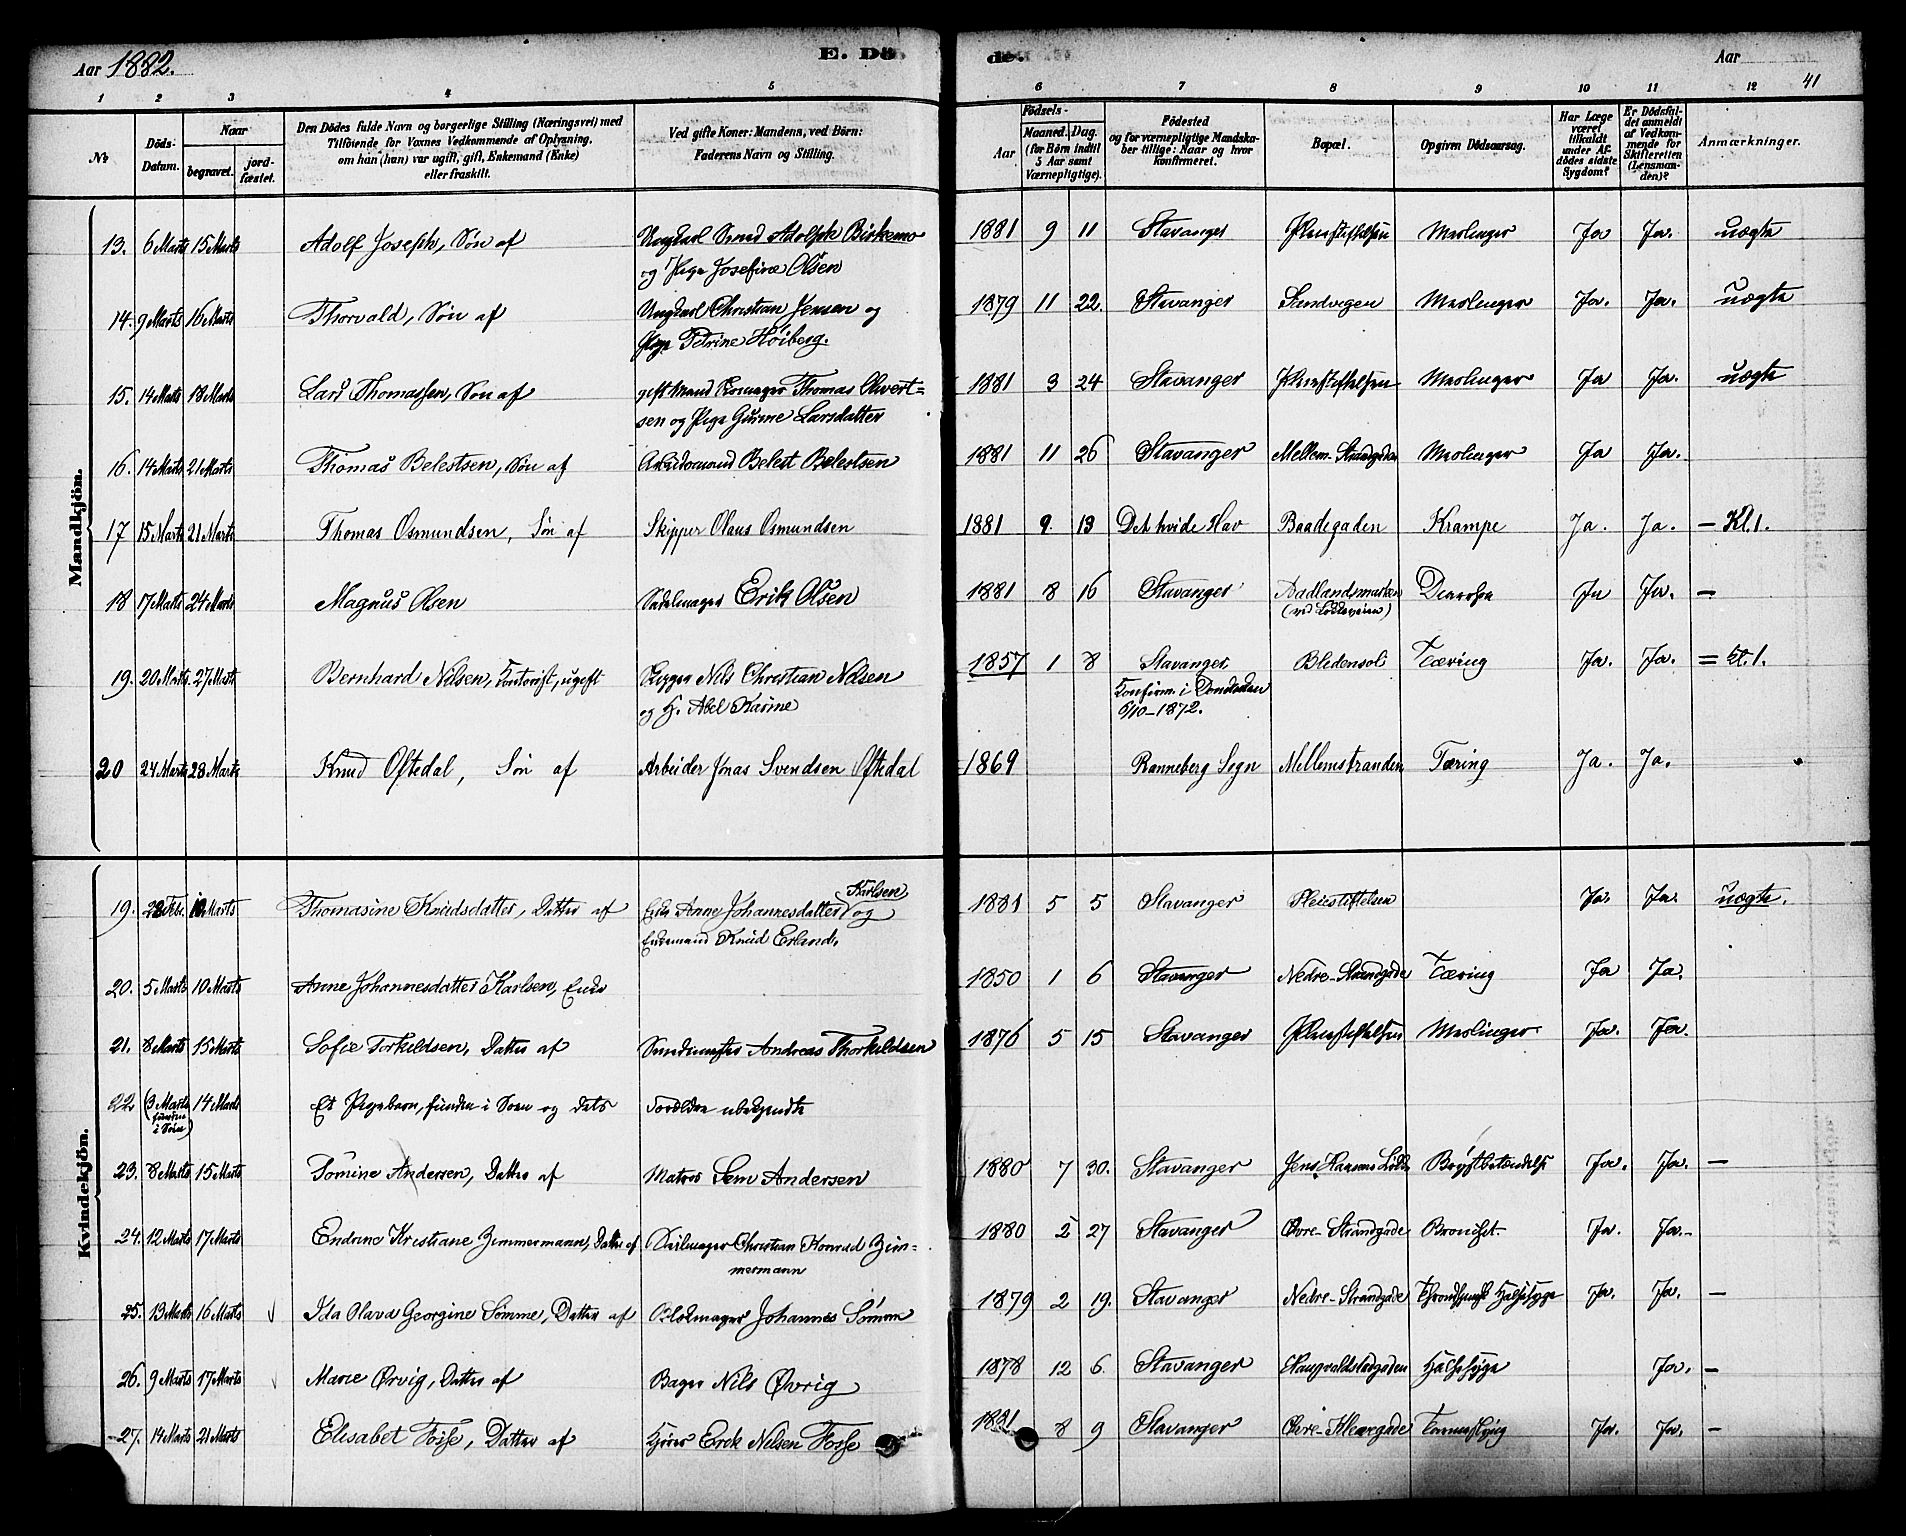 Aar 1882.
E. Dö
de.
Aar
41
1 2 3 4 5 6 7 8 9 10 11 12
No
Döds-Datum.
Naar
begravet.
jordfæstet.
Den Dödes fulde Navn og borgerlige Stilling (Næringsvei) med
Tilföiende for Voxnes Vedkommende af Oplysning,
om han (hun) var ugift, gift, Enkemand (Enke)
eller fraskilt.
Ved gifte Koner: Mandens, ved Börn:
Faderens Navn og Stilling.
Födsels-
Aar
Maaned. Dag.
(for Börn indtil
5 Aar samt
Værnepligtige).
Födested
og for værnepligtige Mandska-
ber tillige: Naar og hvor
konfirmeret.
Bopæl.
Opgiven Dödsaarsag.
Har Læge
været
tilkaldt
under Af-
dödes sidste
Sygdom?
Er Dödsfal-
det anmeldt
af Vedkom-
mende for
Skifteretten
(Lensman-
den)?
Anmærkninger.
Mandkjön.
13. 6 Marts 15 Marts Adolf Joseph, Sön af Ungkarl Smed Adolph Birkemo 1881 9 11 Stavanger Meslinger Ja Ja. uægte
og Pige Josefine Olsen
14. 9 Marts 16 Marts Thorvald, Sön af Ungkarl Christian Jensen og 1879 11 22 Stavanger Sandvigen Meslinger Ja. Ja. uægte
Pige Petrine Höiberg.
15. 14 Marts 18 Marts Lars Thomassen, Sön af gift Mand Thomas 1881 3 24 Stavanger Meslinger Ja Ja. uægte
sen og Pige Gurine Larsdatter
16. 14 Marts 21 Marts Thomas Belestsen, Sön af Arbeidsmand Belest Belestsen 1881 11 26 Stavanger Mellem-Strandgaden Meslinger Ja Ja.
17 15 Marts 21 Marts Thomas Osmundsen, Sön af Skipper Olaus Osmundsen 1881 9. 13 Det hvide Hav Baadegaden Krampe Ja. Ja. — Kl. 1.
18 17 Marts 24 Marts Magnus Olsen Sadelmager Erik Olsen 1881 8 16 Stavanger Aadlandsmarken Diarrhea Ja Ja. —
19. 20 Marts 27 Marts Bernhard Nilsen, Kontorist, ugift Skipper Nils Christian Nilsen 1857 1 8 Stavanger Bledensol Tæring Ja. Ja. = Kl. 1.
og H. Abel Karine Konfirm. i Domkirken
6/10 – 1872.
20 24 Marts 28 Marts Knud Oftedal, Sön af Arbeider Jonas Svendsen Oftedal 1869 Ranneberg Sogn Mellemstranden Tæring Ja. Ja.
Kvindekjön.
Karlsen
19. 28 Febr. Marts Thomasine Knudsdatter, Datter af Enke Anne Johannesdatter og 1881 5 5 Stavanger Pleiestiftelsen Ja. Ja. uægte.
Enkemand Knud Erland.
20. 5 Marts 10 Marts Anne Johannesdatter Karlsen, Enke 1850 1 6 Stavanger Nedre-Strandgade Tæring Ja Ja.
21. 8 Marts 15 Marts Sofie Torkildsen, Datter af Andreas Thorkildsen 1876 5 15 Stavanger Meslinger Ja. Ja.
22 (3 Marts 14 Marts Et Pigebarn, funden i Söen og dets Forældre ubekjendte
funden
i Söen)
23. 8 Marts 15 Marts Tomine Andersen, Datter af Matros Sem Andersen 1880 7 30. Stavanger Brystbetændelse Ja. Ja. —
24. 12 Marts 17 Marts Endrine Kristiane Zimmermann, Datter af Seilmager Christian Konrad Zim- 1880 2 27 Stavanger Övre-Strandgade Bronchit. Ja. Ja. —
mermann
25. 13 Marts 16 Marts Ida Olava Georgine Sömme, Datter af Blokmager Johannes Sömme 1879 2 19. Stavanger Nedre-Strandgade Halssyge Ja. Ja. —
26. 9 Marts 17 Marts Marie Örvig, Datter af Bager Nils Övrig 1878 12 6. Stavanger Halssyge Ja. —
27. 14 Marts 21 Marts Elisabet Fosse, Datter af Erik Nilsen Fosse 1881 8 9 Stavanger Övre-Kleivegade Ja. Ja. —